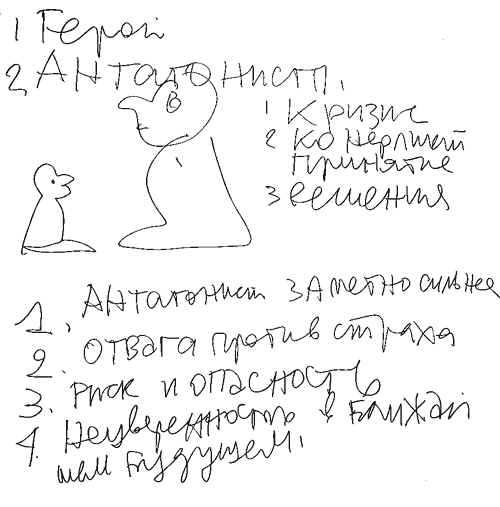 1 Герой
2, Антагонист.
1 Кризис
2 Ко нфликт
принятие
3 решения
1. Антагонист заметно сильнее
2. Отвага против страха
3. Риск и опасность
4. Неуверенность в ближай
шем будущем.